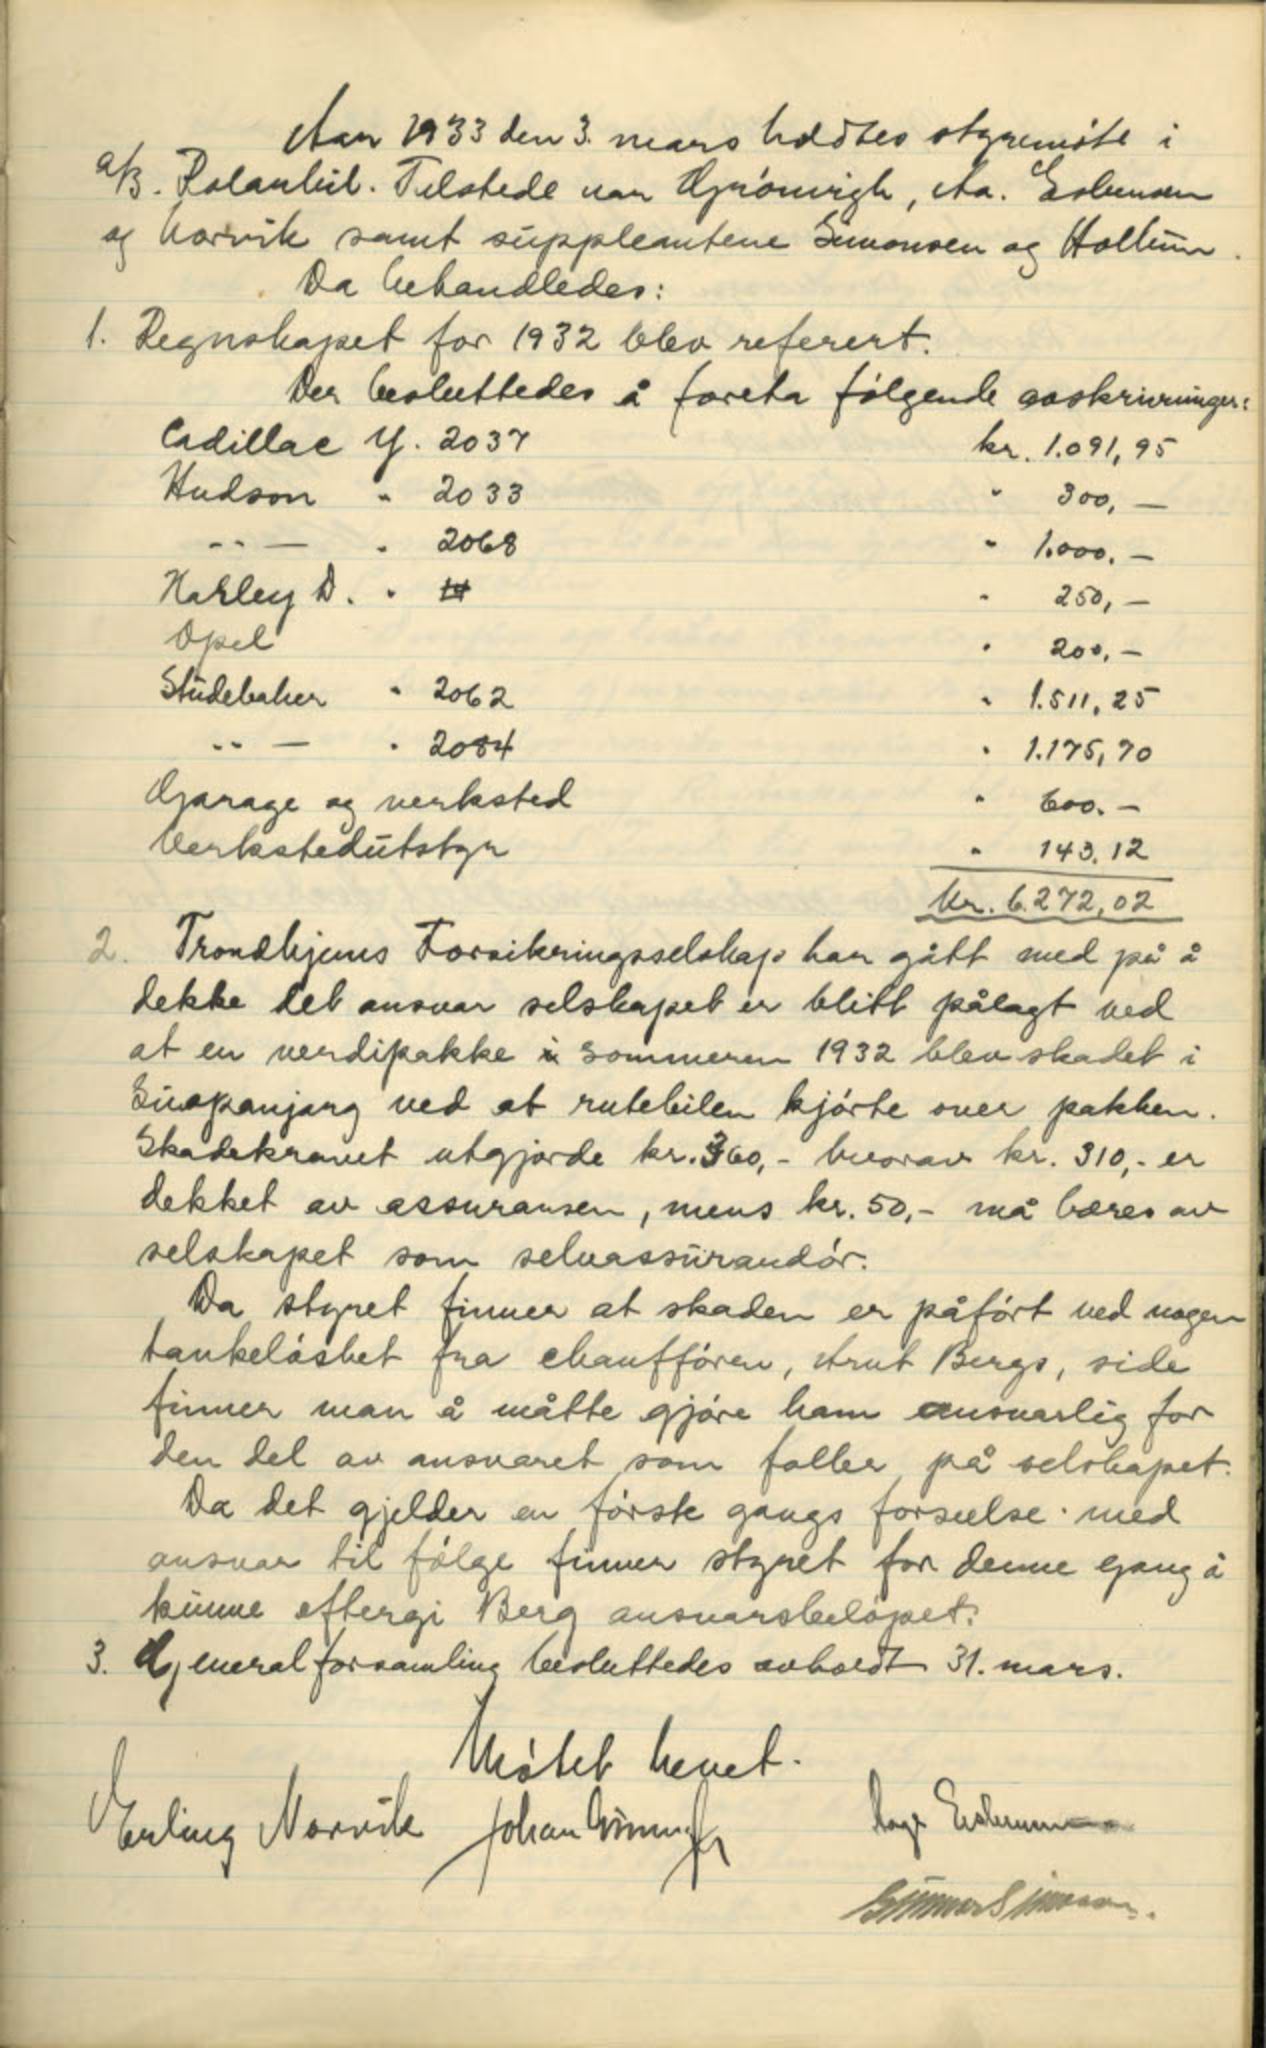 Aar 1933 den 3. mars holdtes styremöte i
a/s. Polarbil. Tilstede var Grönvigh, Aa. Esbensen
og Norvik samt suppleantene Simonsen og Holtum.
Da behandledes:
1. Regnskapet for 1932 blev referert.
Der besluttedes å foreta fölgende avskrivninger:
Cadillac Y. 2037 kr. 1.091,95
Hudson " 2033 " 300,—
-"- " 2068 " 1.000.—
Harley D. " " 250,—
Opel " 200,—
Stüdebaker " 2062 " 1.511,25
-"- " 2084 " 1.175,70
Garage og verksted " 600.—
Verkstedütstyr " 143.12
kr. 6.272,02
2. Trondhjems Forsikringsselskap har gått med på å
dekke det ansvar selskapet er blitt pålagt ved
at en verdipakke i sommeren 1932 blev skadet i
Suopanjarg ved at rutebilen kjörte over pakken.
Skadekravet utgjorde kr. 360,- hvorav kr. 310,- er
dekket av assuransen, mens kr. 50,- må bæres av
selskapet som selvassürandör.
Da styret finner at skaden er påfört ved nogen
tankelöshet fra chauffören, Arnt Bergs, side
finner man å måtte gjöre ham ansvarlig for
den del av ansvaret som faller på selskapet.
Da det gjelder en förste gangs forseelse med
ansvar til fölge finner styret for denne gang å
künne eftergi Berg ansvarsbelöpet.
3. Generalforsamling besluttedes avholdt 31. mars.
Mötet hevet.
Erling Norvik Johan Grönvigh Aage Esbensen
Simonsen.